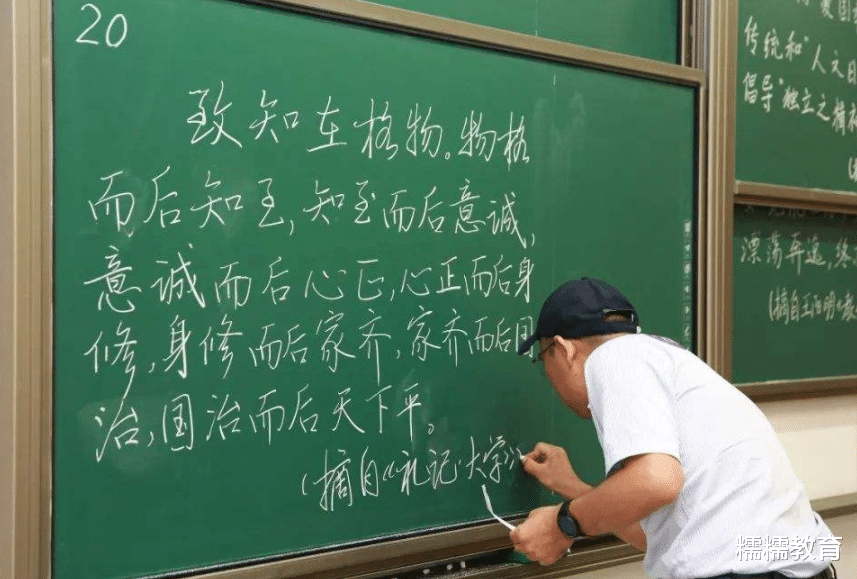 20
致知在格物。物格
而后知至，知至而后意诚，
意诚而后心正，心正而后身
修，身修而后家齐，家齐而后国
治，国治而后天下平。
（摘自《礼记·大学》
传统和"人文日
倡导"独立之精神
漂荡奔逸，终
（摘自王阳明《教
糯糯教育